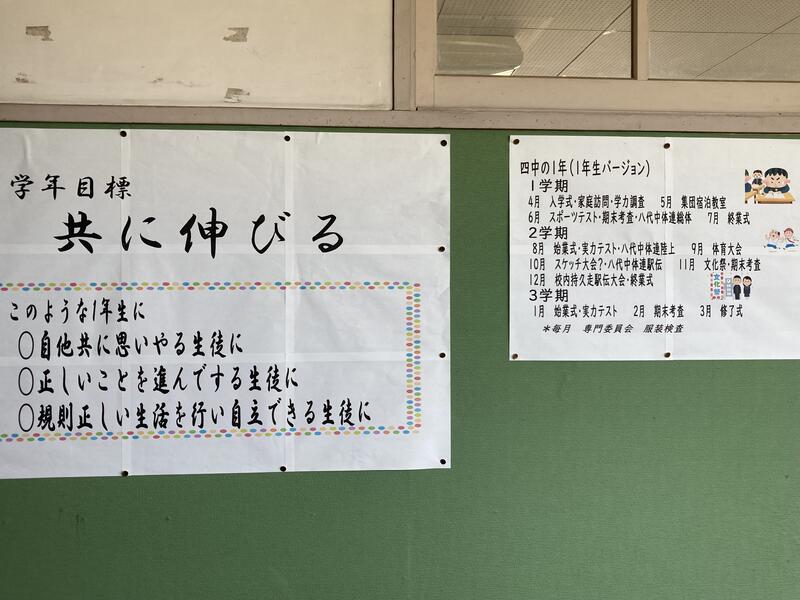 学年目標
共に伸びる
このような1年生に
○自他共に思いやる生徒に
○正しいことを進んでする生徒に
○規則正しい生活を行い自立できる生徒に
四中の1年(1年生バージョン)
1学期
4月 入学式・家庭訪問・学力調査 5月 集団宿泊教室
6月 スポーツテスト・期末考査・八代中体連総体 7月 終業式
2学期
8月 始業式・実力テスト・八代中体連陸上 9月 体育大会
10月 スケッチ大会?・八代中体連駅伝 11月 文化祭・期末考査
12月 校内持久走駅伝大会・終業式
文化祭
3学期
1月 始業式・実力テスト 2月 期末考査 3月 修了式
*毎月 専門委員会 服装検査